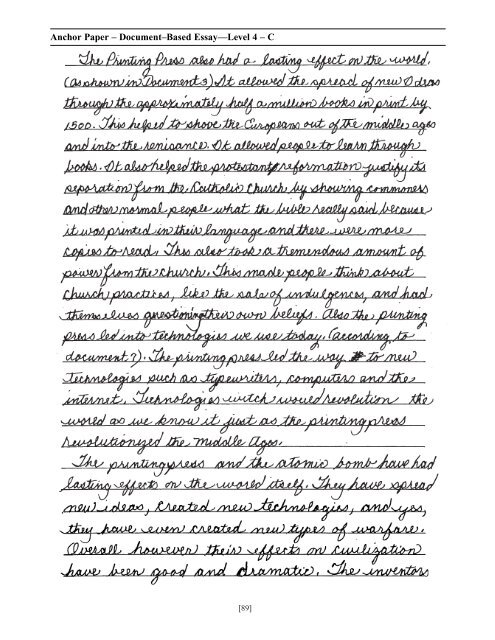 Anchor Paper – Document–Based Essay—Level 4 – C
The Printing Press also had a lasting effect on the world.
(as shown in Document 3) It allowed the spread of new Ideas
through the approximately half a million books in print by
1500. This helped to shove the Europeans out of the middle ages
and into the renisance. It allowed people to learn through
books. It also helped the protestant reformation justify its
seporation from the Catholic Church by showing commoners
and other normal people what the bible really said because
it was printed in their language and there were more
copies to read. This also took a tremendous amount of
power from the church. This made people think about
church practices, like the sale of indulgences, and had
themselves questioning their own beliefs. Also the printing
press led into technologies we use today. (according to
document 7). The printing press led the way to new
Technologies such as typewriters, computers and the
internet. Technologies witch would revolution the
world as we know it just as the printing press
revolutionized the middle Ages.
The printing press and the atomic bomb have had
lasting effects on the world itself. They have spread
new ideas, created new technologies, and yes,
they have even created new types of warfare.
Overall however their effects on civilization
have been good and dramatic. The inventors
[89]